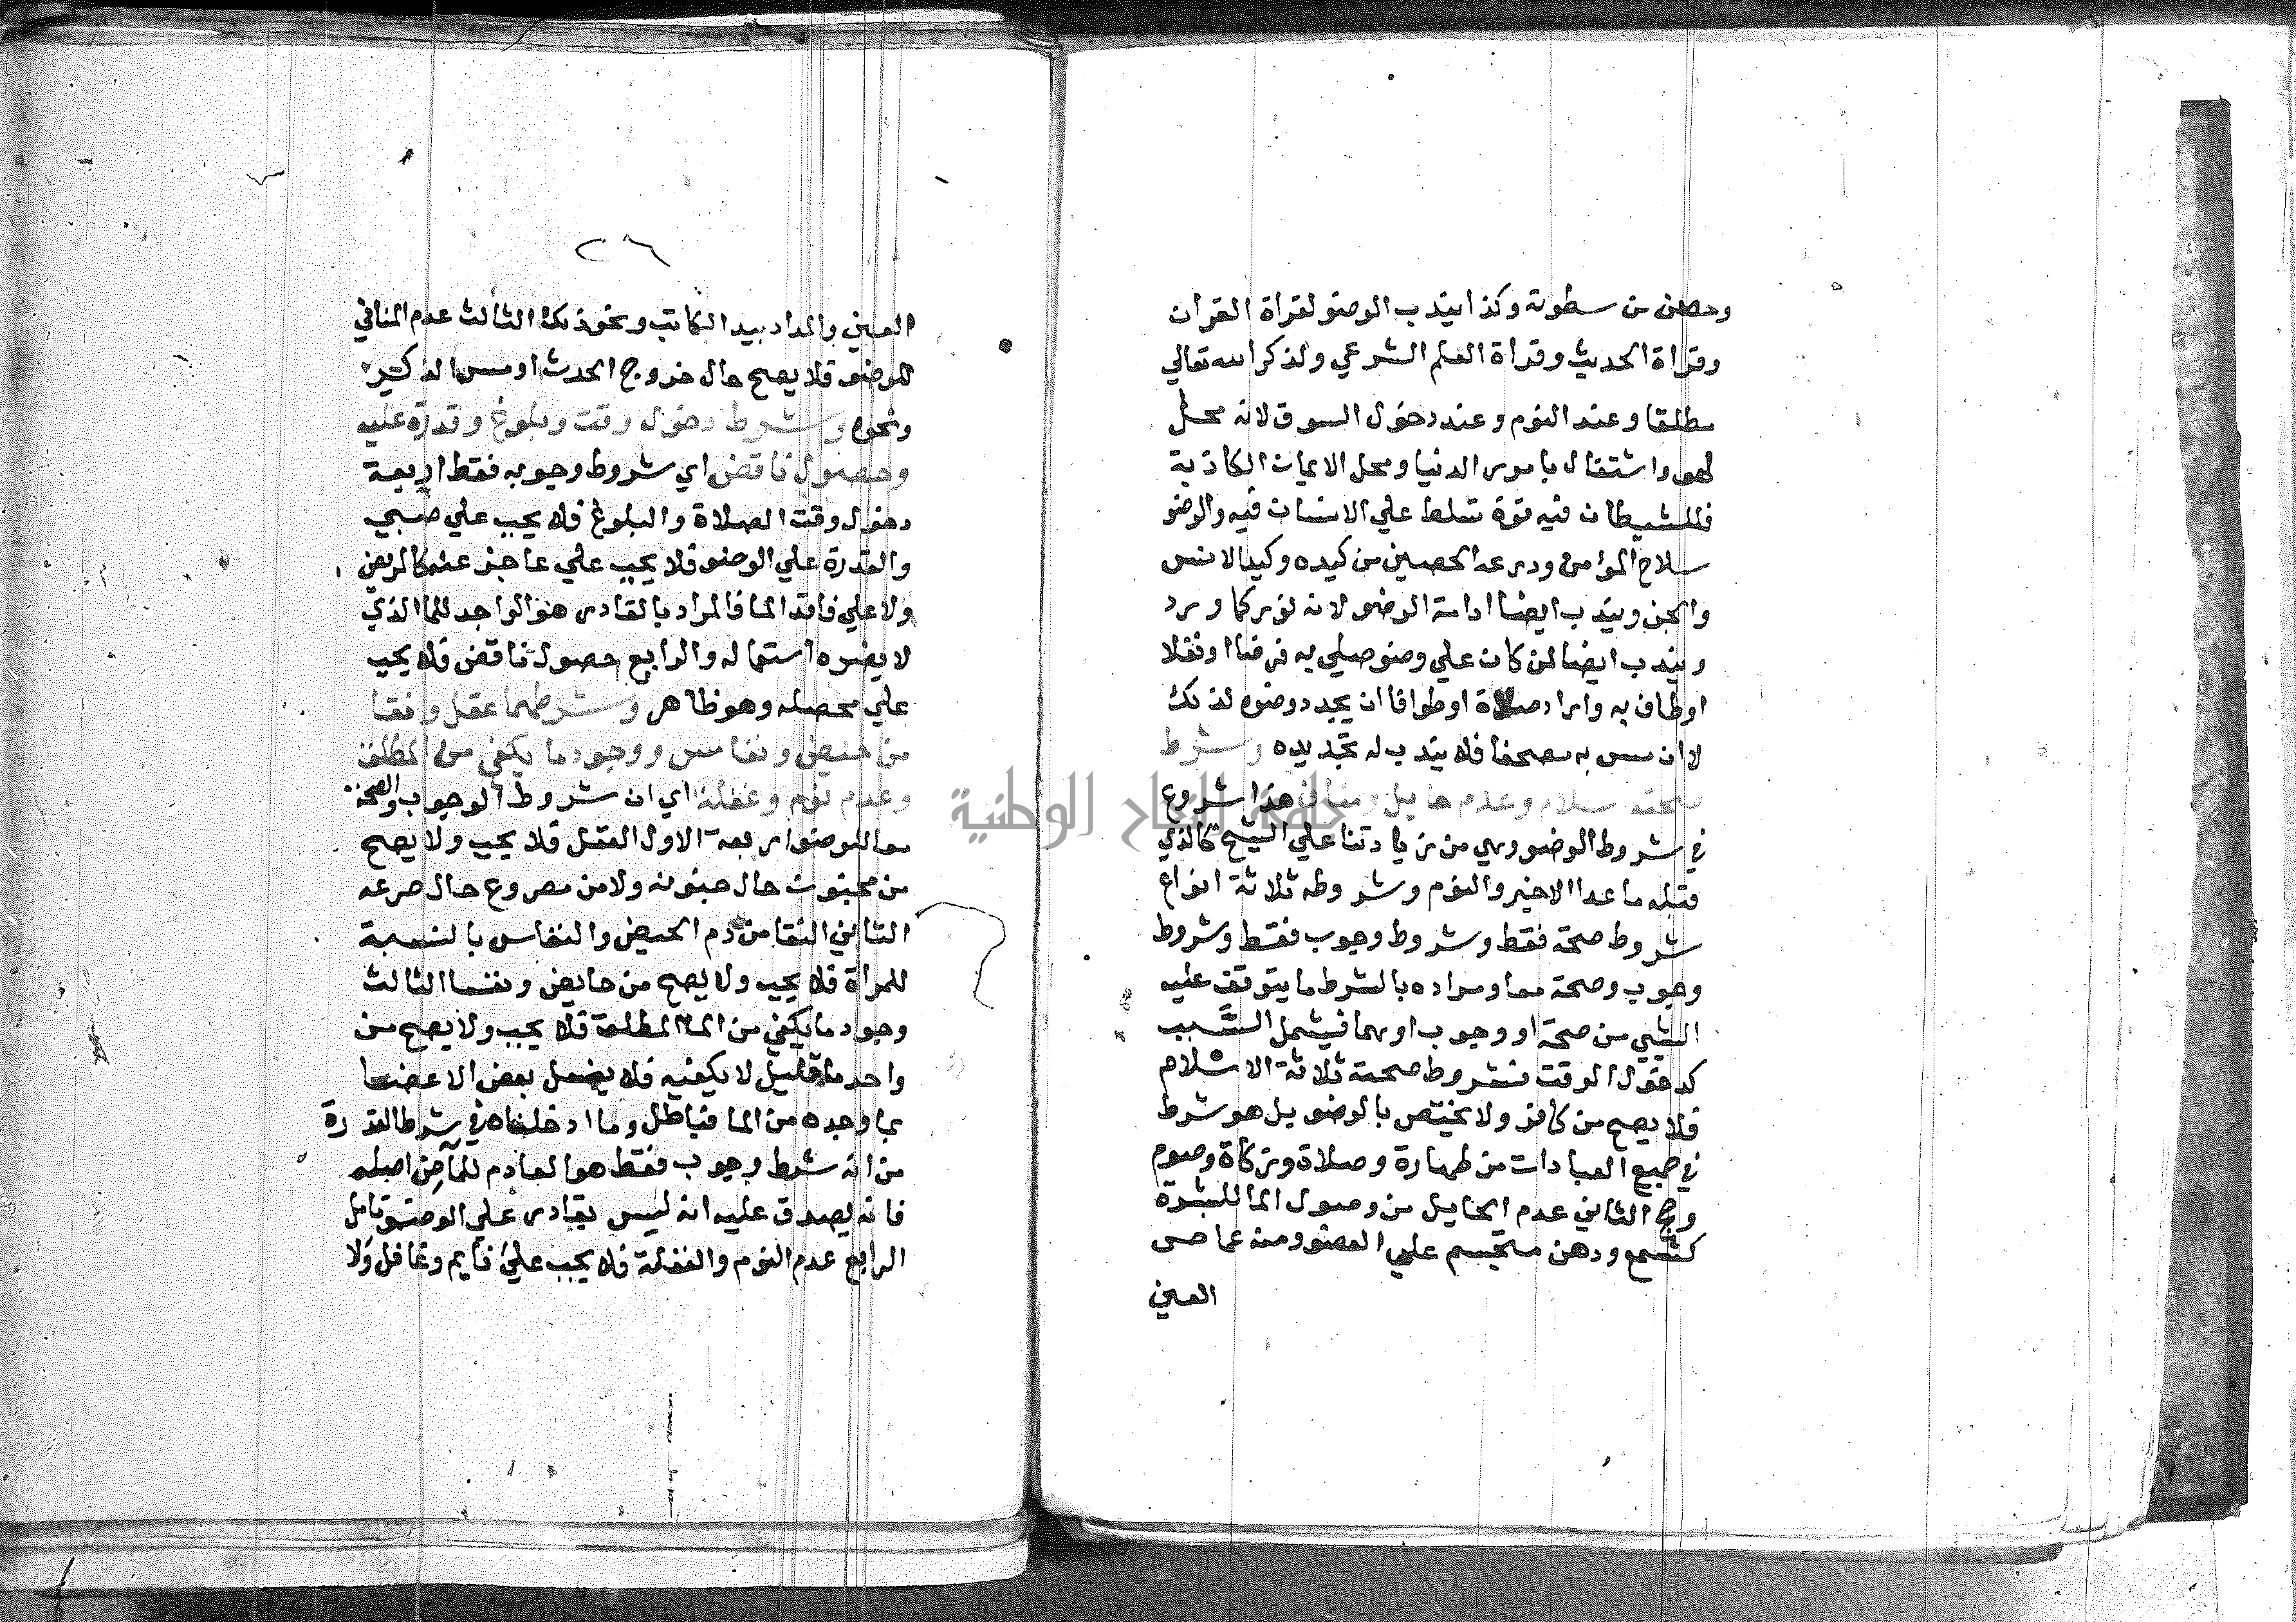 وحصن من سطوته وكذا يندب الوضو لقراة القران
وقراة الحديث وقراة العلم الشرعي ولذكر الله تعالي
مطلقا وعند النوم وعند دخول السوق لانه محل
لهو واشتغال بامور الدنيا ومحل الايمان الكاذبة
فللشيطان فيه قوة تسلط علي الانسان فيه والوضو
سلاح المؤمن ودرعه الحصين من كيده وكيد الانس
والجن ويندب ايضا ادامة الوضو لانه نور كما ورد
ويندب ايضا لمن كان علي وضو صلي به فرضا او نفلا
او طاف به واراد صلاة او طوافا ان يجدد وضوه لذلك
لا ان مس به مصحفا فلا يندب له تجديده وشرط
صحته سلام وعدم حايل ومناف هذا شروع
في شروط الوضو وهي من زيادتنا علي الشيخ كالذي
قبله ما عدا الاخير والنوم وشروطه ثلاثة انواع
شروط صحة فقط وشروط وجوب فقط وشروط
وجوب وصحة معا ومراده بالشرط ما يتوقف عليه
الشي من صحة او وجوب او هما فيشمل السبب
كدخول الوقت فشروط صحته ثلاثة الاسلام
فلا يصح من كافر ولا يختص بالوضو بل هو شرط
في جميع العبادات من طهارة وصلاة وزكاة وصوم
وحج الثاني عدم الحايل من وصول الما للبشرة
كشمع ودهن متجسم علي العضو ومنه عماص
العين
٢٦
العين والمداد بيد الكاتب ونحو ذلك الثالث عدم المنافي
للوضو فلا يصح حال خروج الحدث او مس الذكر
ونحوه وشرط دخول وقت وبلوغ وقدرة عليه
وحصول ناقض اي شروط وجوبه فقط اربعة
دخول وقت الصلاة والبلوغ فلا يجب علي صبي
والقدرة علي الوضو فلا يجب علي عاجز عنه كالمريض
ولا علي فاقد الما فالمراد بالقادر هو الواجد للما الذي
لا يضره استعماله والرابع حصول ناقض فلا يجب
علي محصله وهو ظاهر وشرطهما عقل ونقا
من حيض ونفاس ووجود ما يكفي من المطلق
وعدم نوم وغفلة اي ان شروط الوجوب والصحة
معا للوضو اربعة الاول العقل فلا يجب ولا يصح
من مجنون حال جنونه ولا من مصروع حال صرعه
الثاني النقا من دم الحيض والنفاس بالنسبة
للمراة فلا يجب ولا يصح من حايض ونفسا الثالث
وجود ما يكفي من الما المطلق فلا يجب ولا يصح من
واجد ما قليل لا يكفيه فلا يغسل بعض الاعضا
بما وجده من الما فباطل وما ادخلناه في شرط القدرة
من انه شرط وجوب فقط هو العادم للما من اصله
فانه يصدق عليه انه ليس بقادر علي الوضو تامل
الرابع عدم النوم والغفلة فلا يجب علي نايم وغافل ولا
جامعة النجاح الوطنية